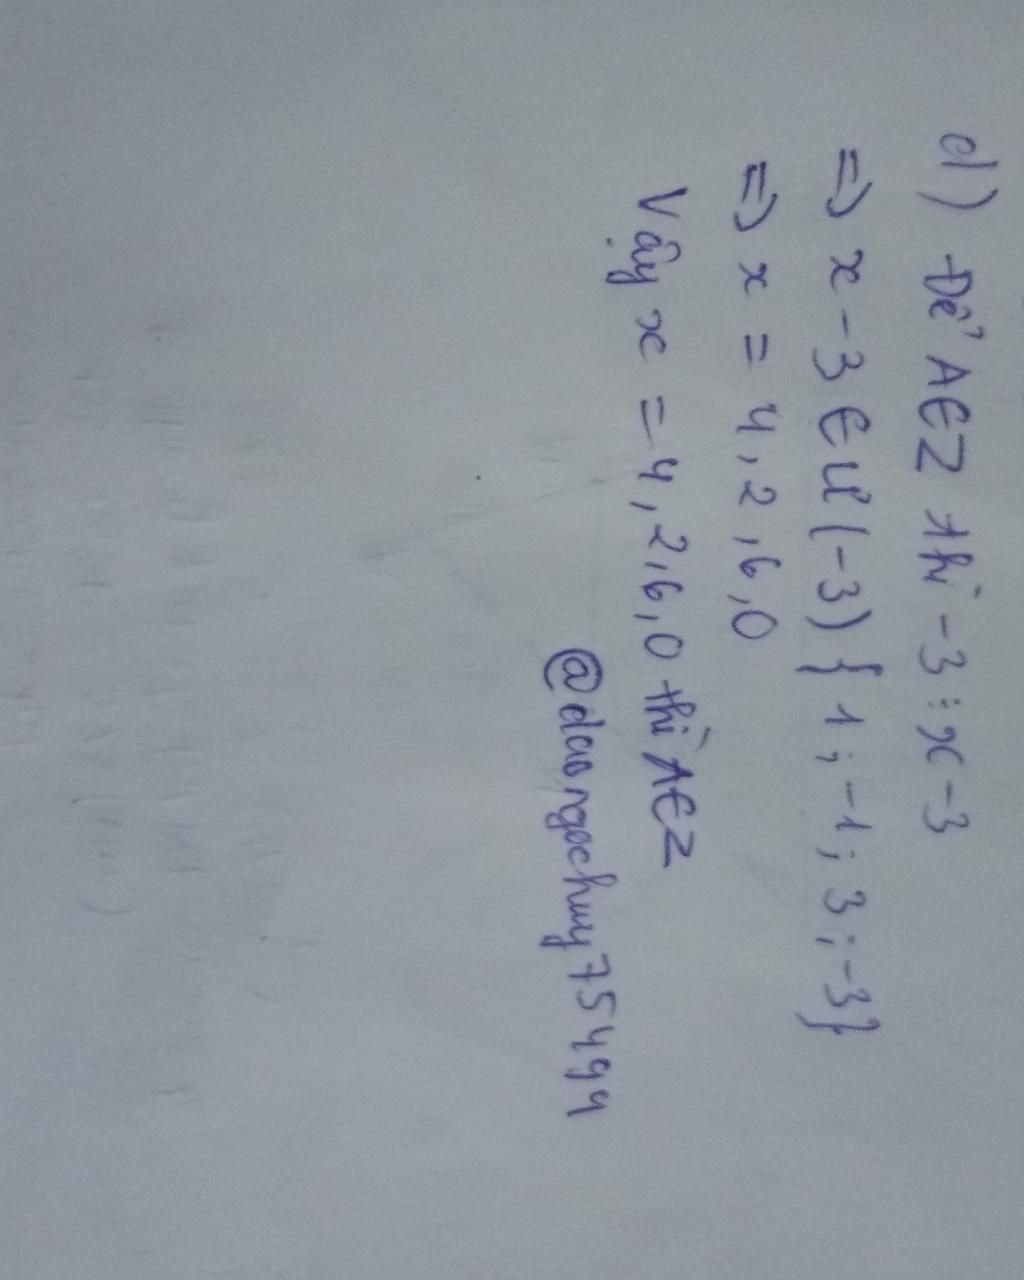 d) Để A∈Z thì -3 ⋮ x-3
=> x-3 ∈ Ư(-3) { 1 ; -1 ; 3 ; -3}
=> x = 4, 2, 6, 0
Vậy x = 4, 2, 6, 0 thì A∈Z
@daongochuy75499